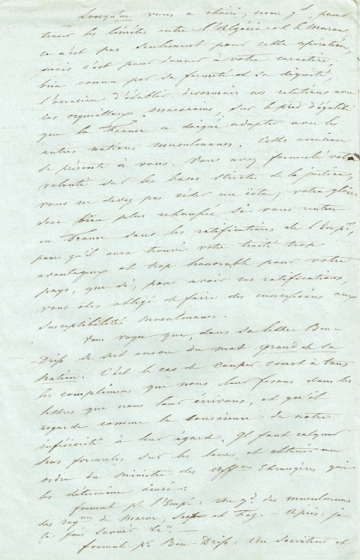 Lorsqu'on vous a choisi, mon gl, pour
tracer les limites entre l'Algérie et le Maroc,
ce n'est pas seulement pour cette opération
mais c'est pour donner à votre caractère,
bien connu par sa fermeté et sa dignité,
l'occasion d'établir désormais nos relations avec
ces orgueilleux marocains, sur le pied d'égalité
que la France a daigné adopter avec les
autres nations musulmanes. Cette occasion
se présente à vous. Vous avez formulé votre
volonté sur les bases strictes de la justice,
vous ne devez pas céder un iota; votre gloire
sera bien plus rehaussée si vous rentrez
en France sans les ratifications de l'Empr,
parce qu'il aura trouvé votre traité trop
avantageux et trop honorable pour votre
pays, que si, pour avoir ces ratifications,
vous êtes obligé de faire des concessions aux
susceptibilités musulmanes.
Vous voyez que, dans sa lettre Ben-
Driss se sert encore du mot grand de sa
nation. C'est le cas de couper court à tous
les compliments que nous leur faisons dans les
lettres que nous leur écrivons, et qu'il
regarde comme la conscience de notre
infériorité à leur égard. Il faut calquer
nos formules sur les leurs, et obtenir un
ordre du Ministre des affres Etrangères qui
les détermine
formule pr l'Empr.
de Maroc, Fez
je
formule pr Ben-Driss, et